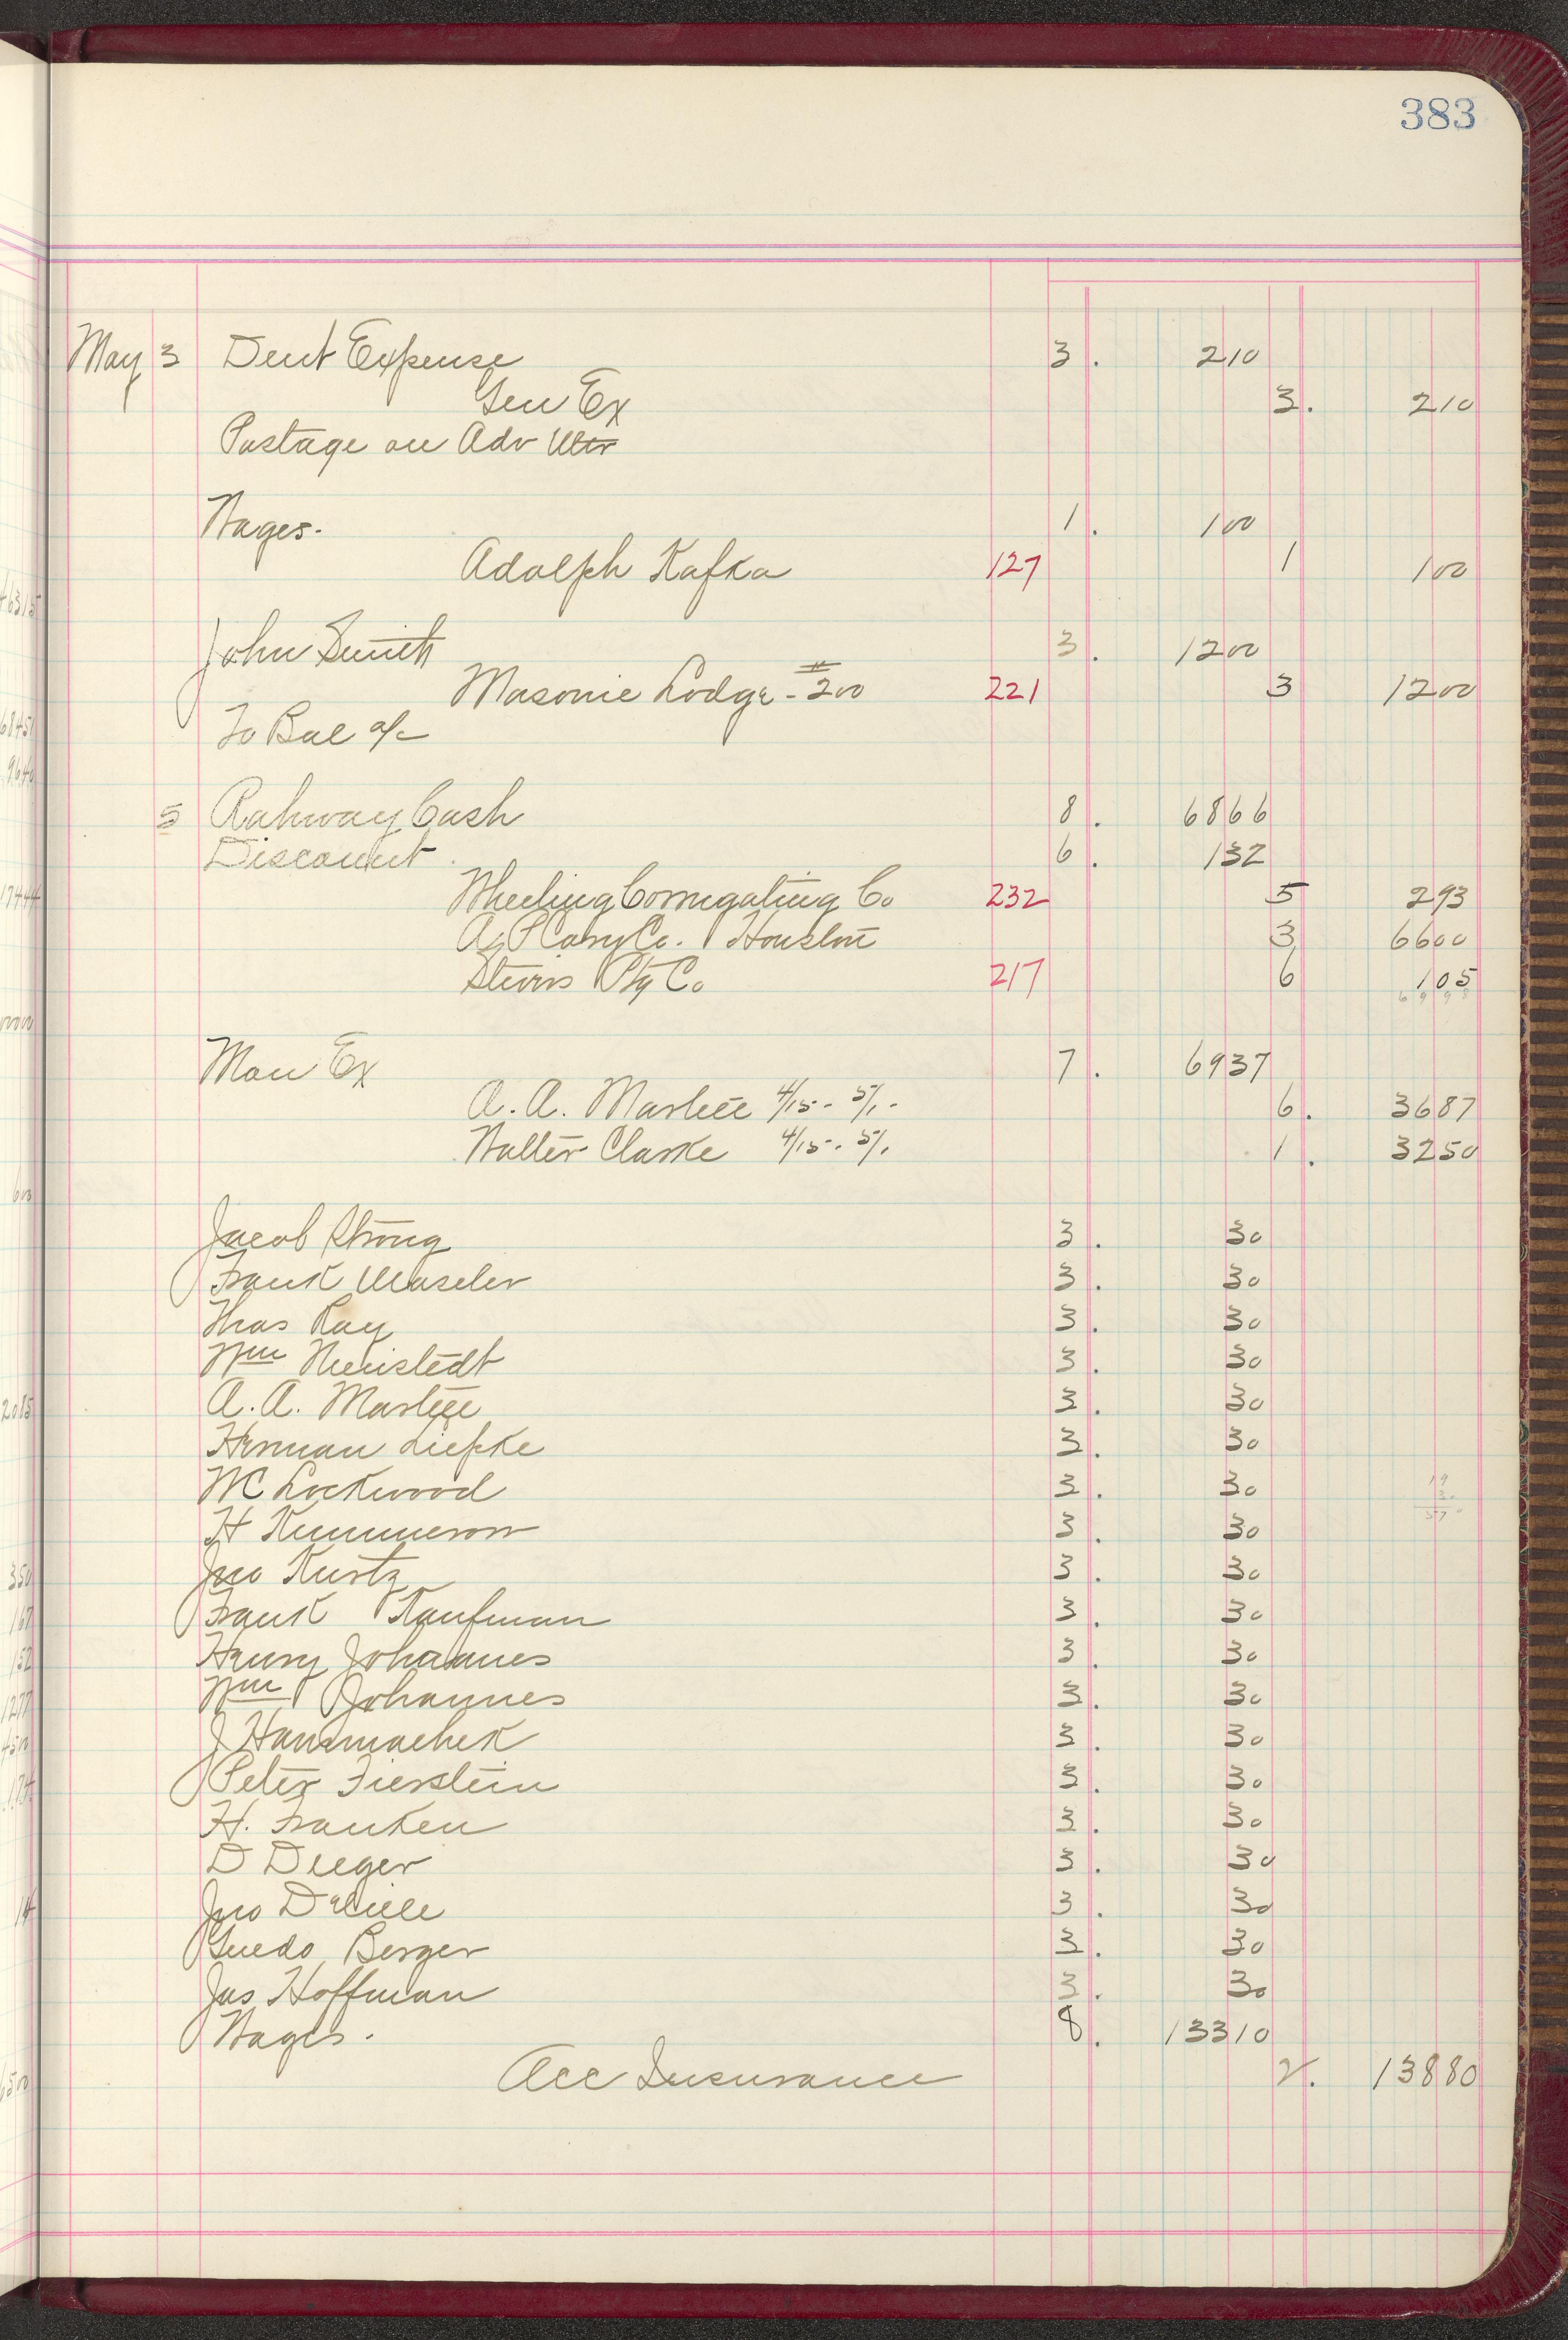 383
May 3 Dent Expense 3. 210
Gen Ex 3. 210
Postage on Adv
Wages. 1. 100
Adolph Kafka 127 1 100
John Smith 3. 1200
Masonic Lodge - # 200 221 3 1200
To Bal a/c
5 Rahway Cash 8. 6866
Discount. 6. 132
Wheeling Corrugating Co 232 5 293
Co. Houston 3 6600
Co 217 6 105
6998
Man Ex 7. 6937
A. A. 4/15 - 5/1 - 6. 3687
Walter Clarke 4/15 - 5/1. 1. 3250
Jacob Strong 3. 30
Frank 3. 30
Thos Ray 3. 30
Wm 3. 30
A. A. 3. 30
Herman Liepke 3. 30
WC Lockwood 3. 30
H 3. 30
Jno Kurtz 3. 30
Frank Kaufman 3. 30
Henry Johannes 3. 30
Wm Johannes 3. 30
J 3. 30
Peter Fierstein 3. 30
H. Franken 3. 30
D Deeger 3. 30
Jno 3. 30
Guedo Berger 3. 30
Jas Hoffman 3. 30
Wages. 8. 13310
Acc Insurance 2. 13880